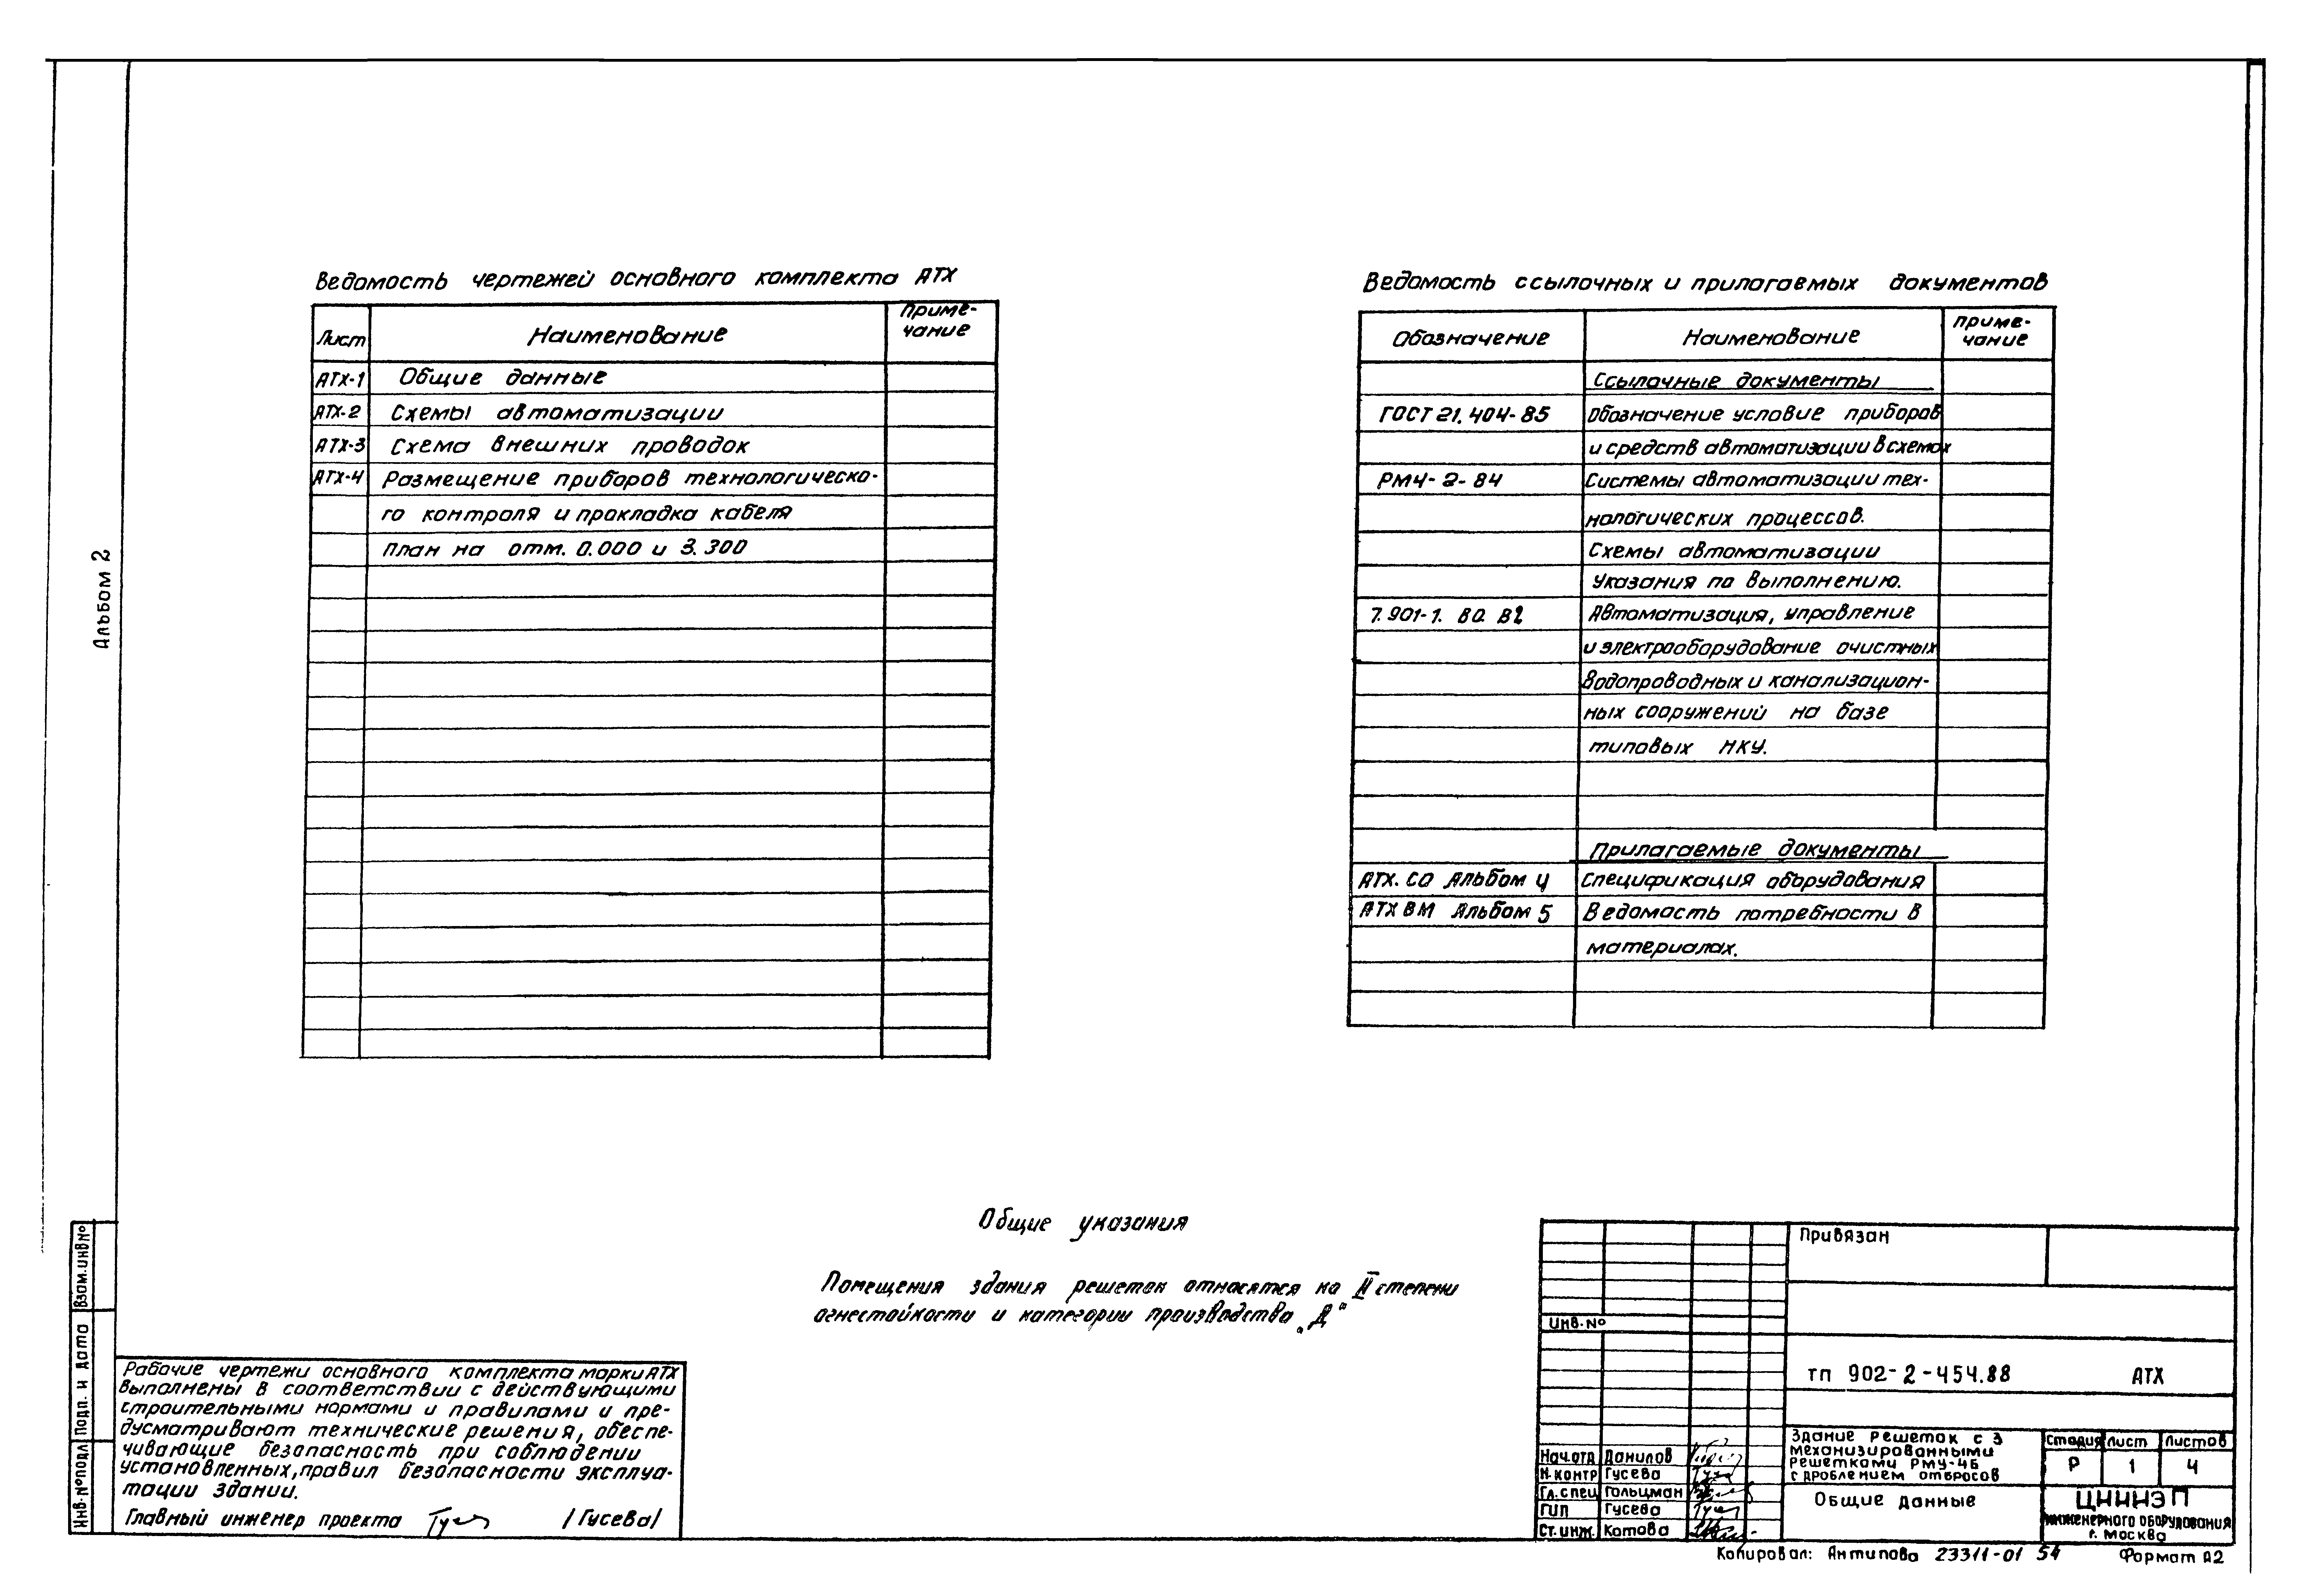 Альбом 2
Ведомость чертежей основного комплекта АТХ
Лист Наименование Приме-
чание
АТХ-1 Общие данные
АТХ-2 Схемы автоматизации
АТХ-3 Схема внешних проводок
АТХ-4 Размещение приборов технологическо-
го контроля и прокладка кабеля
План на отм. 0.000 и 3.300
Ведомость ссылочных и прилагаемых документов
Обозначение Наименование Приме-
чание
Ссылочные документы
ГОСТ 21.404-85 Обозначение условие приборов
и средств автоматизации в схемах
РМ4-2-84 Системы автоматизации тех-
нологических процессов.
Схемы автоматизации
Указания по выполнению.
7.901-1. В0. В1 Автоматизация, управление
и электрооборудование очистных
водопроводных и канализацион-
ных сооружений на базе
типовых НКУ.
Прилагаемые документы
АТХ. СО Альбом 4 Спецификация оборудования
АТХ ВМ Альбом 5 Ведомость потребности в
материалах.
Общие указания
Помещения здания решеток относятся ко II степени
огнестойкости и категории производства „Д"
Рабочие чертежи основного комплекта марки АТХ
выполнены в соответствии с действующими
строительными нормами и правилами и пре-
дусматривают технические решения, обеспе-
чивающие безопасность при соблюдении
установленных, правил безопасности эксплуа-
тации здании.
Главный инженер проекта /Гусева/
Инв.№подл Подп. и дата Взам.инв№
Привязан
Инв.№
тп 902-2-454.88 АТХ
Нач.отд Данилов
Н.контр Гусева
Гл.спец Гольцман
ГИП Гусева
Ст.инж. Котова
Здание решеток с 3
механизированными
решетками РМУ-4Б
с дроблением отбросов
Стадия Лист Листов
Р 1 4
Общие данные
ЦНИИЭП
инженерного оборудования
г. Москва
Копировал: Антипова 23311-01 54 Формат А2